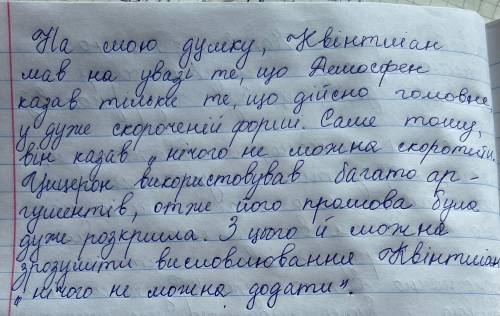 На мою думку, Квінтиліан
мав на увазі те, що Демосфен
казав тільки те, що дійсно головне
у дуже скороченій формі. Саме тому,
він казав „нічого не можна скоротити.
Цицерон використовував багато ар-
гументів, отже його промова була
дуже розкришла. З цього й можна
зрозуміти висловлювання Квінтиліан
„нічого не можна додати".